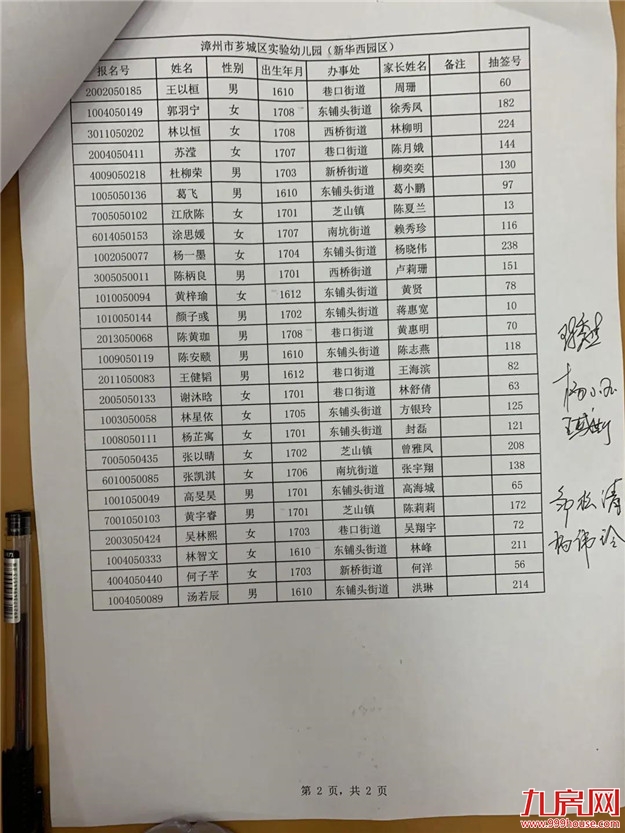 漳州市芗城区实验幼儿园（新华西园区）
报名号 姓名 性别 出生年月 办事处 家长姓名 备注 抽签号
2002050185 王以桓 男 1610 巷口街道 周珊 60
1004050149 郭羽宁 女 1708 东铺头街道 徐秀凤 182
3011050202 林以恒 女 1708 西桥街道 林柳明 224
2004050411 苏滢 女 1707 巷口街道 陈月娥 144
4009050218 杜柳荣 男 1703 新桥街道 柳奕奕 130
1005050136 葛飞 男 1610 东铺头街道 葛小鹏 97
7005050102 江欣陈 女 1701 芝山镇 陈夏兰 13
6014050153 涂思媛 女 1707 南坑街道 赖秀珍 116
1002050077 杨一墨 女 1704 东铺头街道 杨晓伟 238
3005050011 陈柄良 男 1701 西桥街道 卢莉珊 151
1010050094 黄梓瑜 女 1612 东铺头街道 黄贤 78
1010050144 颜子彧 男 1702 东铺头街道 蒋惠宽 10
2013050068 陈黄珈 男 1708 巷口街道 黄惠明 70
1009050119 陈安颐 男 1610 东铺头街道 陈志燕 118
2011050083 王健韬 男 1612 巷口街道 王海滨 82
2005050133 谢沐晗 女 1701 巷口街道 林舒倩 63
1003050058 林星依 女 1705 东铺头街道 方银玲 125
1008050111 杨芷寓 女 1701 东铺头街道 封磊 121
7005050435 张以晴 女 1702 芝山镇 曾雅凤 208
6010050085 张凯淇 女 1706 南坑街道 张宇翔 138
1001050049 高旻昊 男 1701 东铺头街道 高海城 65
7001050103 黄宇睿 男 1701 芝山镇 陈莉莉 172
2003050424 吴林熙 女 1703 巷口街道 吴翔宇 72
1004050333 林智文 女 1610 东铺头街道 林峰 211
4004050440 何子芊 女 1703 新桥街道 何洋 56
1004050089 汤若辰 男 1610 东铺头街道 洪琳 214
第 2 页，共 2 页
九房网
www.999house.com